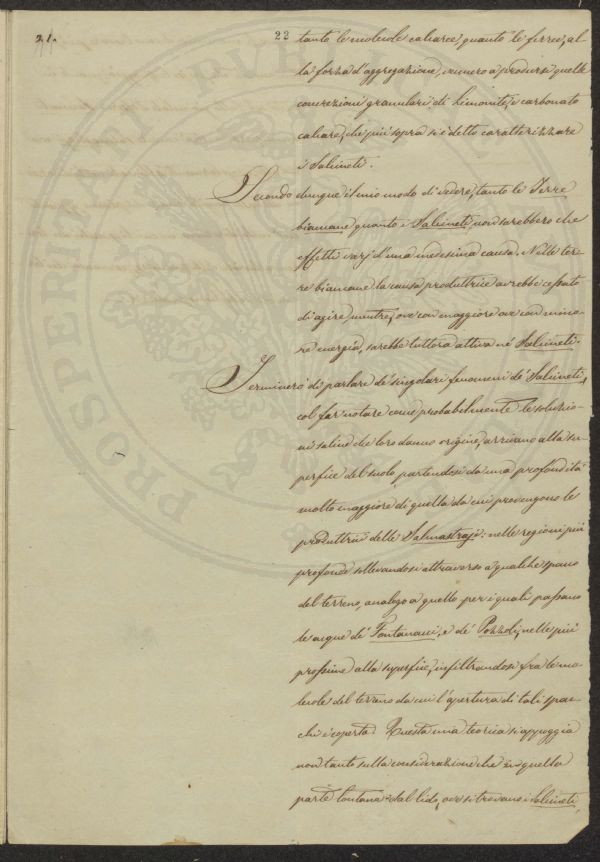 21.
22
tanto le molecole calcaree, quanto le ferree, al
la forza d'aggregazione, a produrre quelle
concrezioni granulari di Limonite, e carbonato
calcare, che più sopra si è detto caratterizzare
i Salineti.
Secondo dunque il mio modo di vedere, tanto le Terre
biancane quanto i Salineti, non sarebbero che
effetti varj d'una medesima causa. Nelle ter-
re biancane la causa produttrice avrebbe cessato
di agire, mentre, ove con maggiore ove con mino-
re energia, sarebbe tuttora attiva ne' Salineti.
Terminerò di parlare de' singolari fenomeni de' Salineti,
col far notare come probabilmente le soluzio-
ni saline che loro danno origine, arrivano alla su-
perficie del suolo, partendosi da una profondità
molto maggiore di quella da cui provengono le
produttrici delle Salmastraje: nelle regioni più
profonde sollevandosi attraverso a qualche spacco
del terreno, analogo a quello per i quali passano
le acque de' Fontanacci, e de' Pozzoli; nelle più
prossime alla superficie, infiltrandosi fra le mo-
lecole del terreno da cui l'apertura di tali spac-
chi è coperta. Questa mia teorica si appoggia
non tanto sulla considerazione che in quella
parte lontana dal lido, ove si trovano i Salineti